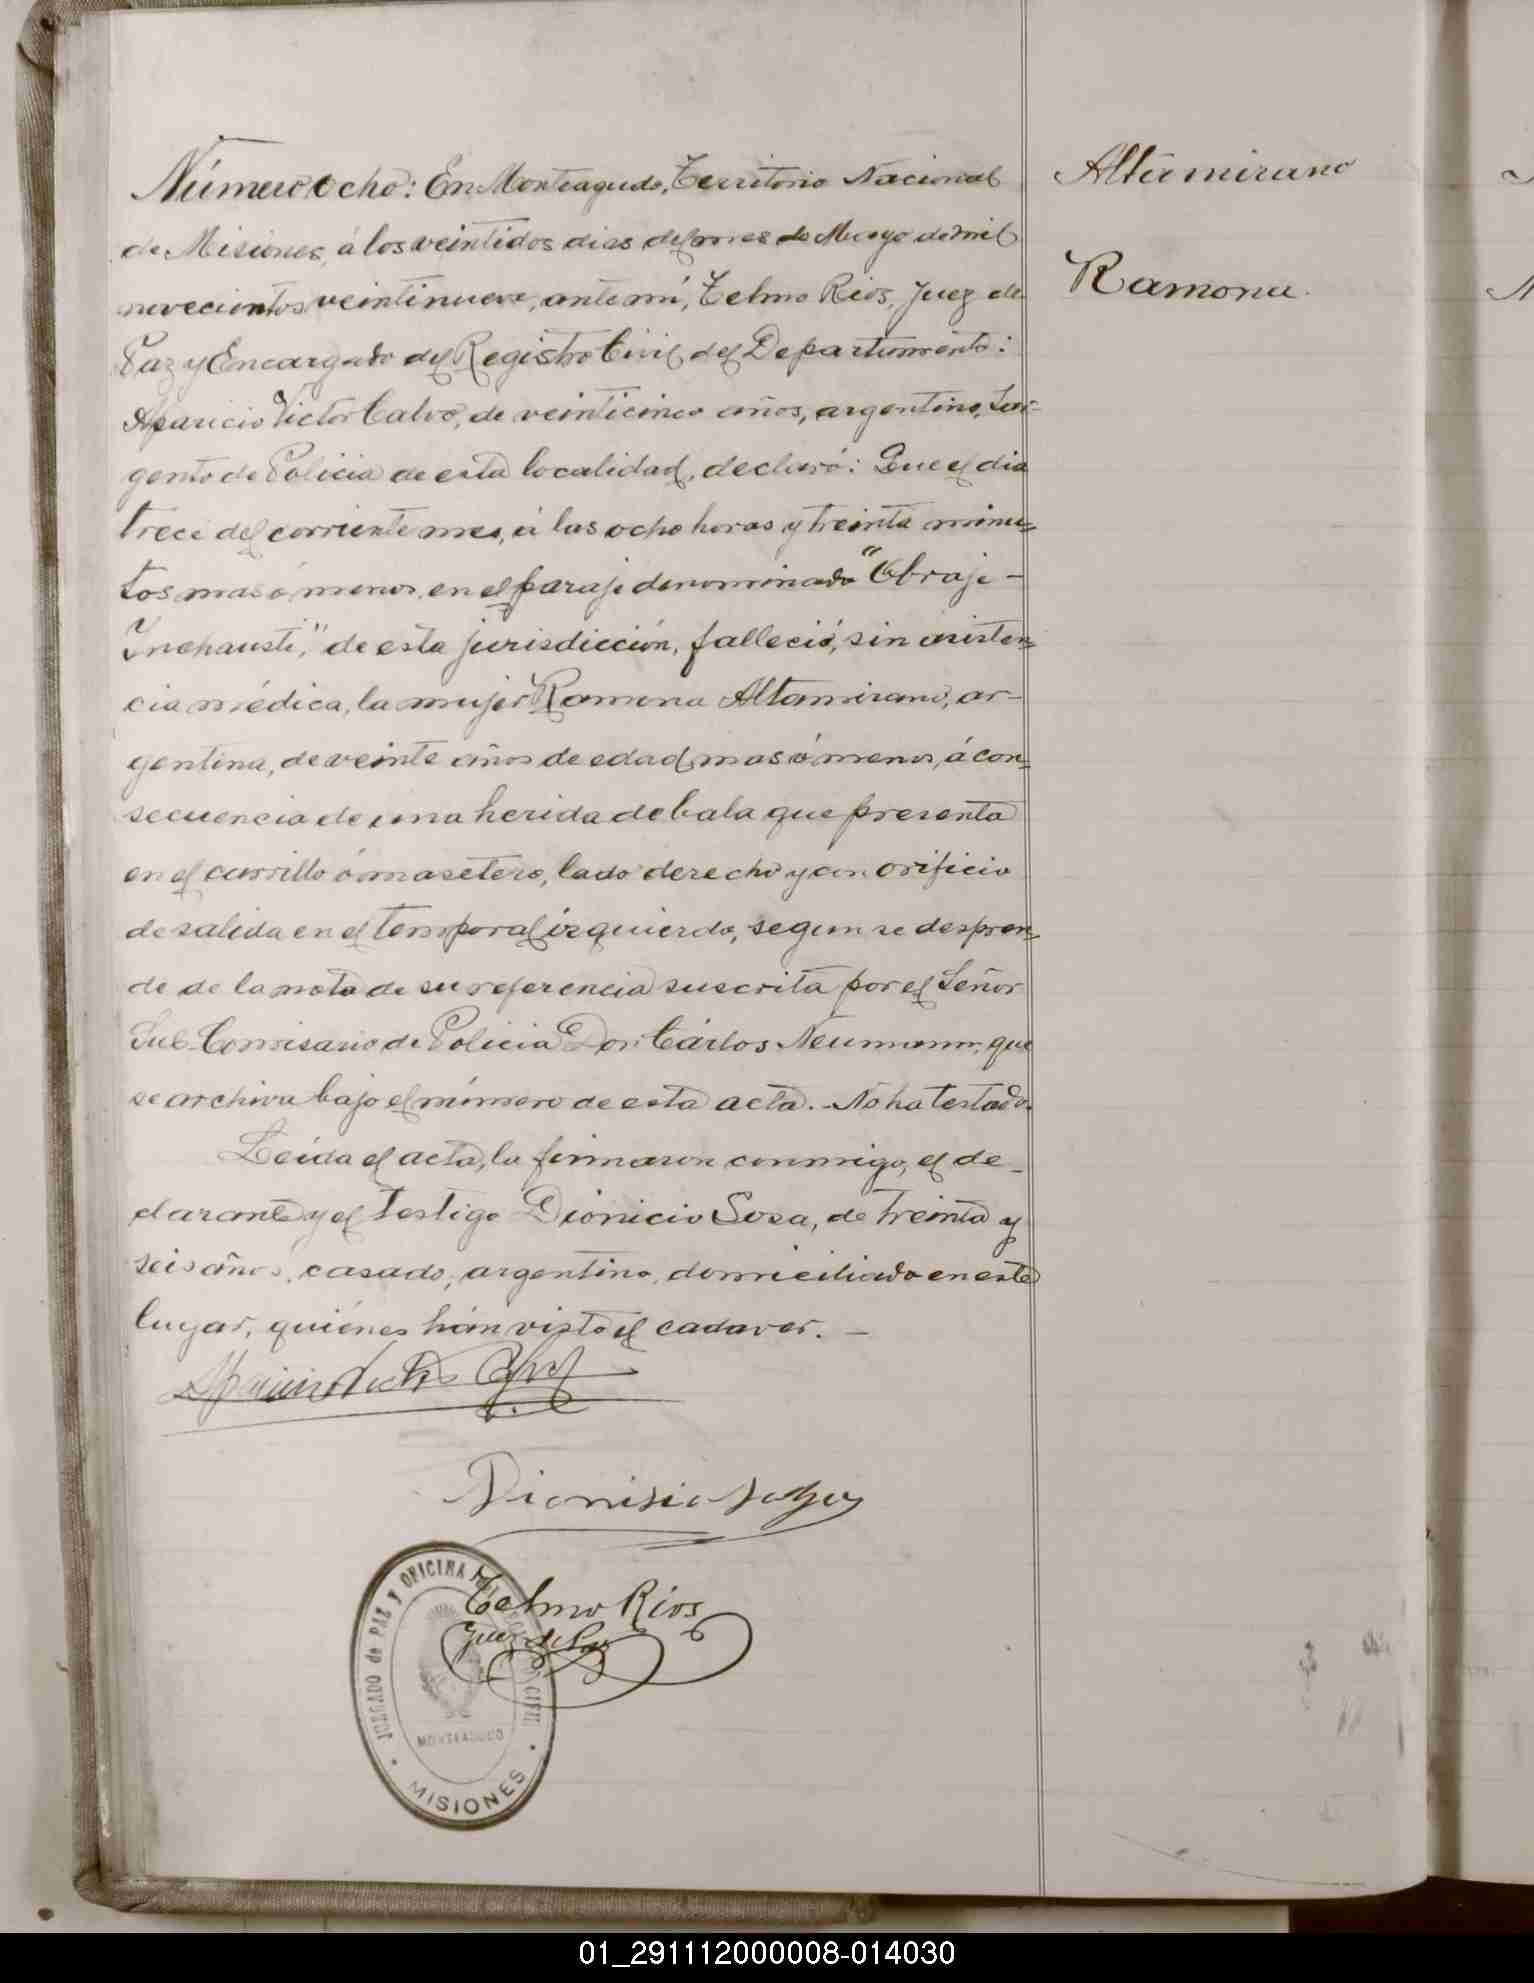 Número ocho: En Monteagudo, Territorio Nacional
de Misiones, á los veintidos dias del mes de Mayo de mil
novecientos veintinueve, ante mí, Telmo Rios, Juez de
Paz y Encargado del Registro Civil del Departamento:
Aparicio Victor Calvo, de veinticinco años, argentino, Sar-
gento de Policia de esta localidad, declaró: Que el dia
trece del corriente mes, á las ocho horas y treinta minu=
tos mas ó menos, en el paraje denominado "Obraje-
Inchausti," de esta jurisdicción, falleció, sin asisten=
cia médica, la mujer Ramona Altamirano, ar-
gentina, de veinte años de edad mas ó menos, á con=
secuencia de una herida de bala que presenta
en el carrillo ó masetero, lado derecho y con orificio
de salida en el temporal izquierdo, segun se despren=
de de la nota de su referencia suscrita por el Señor
Sub-Comisario de Policia Don Cárlos Neumann, que
se archiva bajo el número de esta acta.- No ha testado.
Leída el acta, la firmaron conmigo, el de-
clarante y el testigo Dionicio Sosa, de treinta y
seis años, casado, argentino, domiciliado en este
lugar, quiénes hán visto el cadaver. -
Aparicio Victor Calvo
Dionisio Sosa
Telmo Ríos
Juez de Paz
JUZGADO de PAZ Y OFICINA CIVIL
MONTEAGUDO
MISIONES
Altamirano
Ramona.
01_291112000008-014030